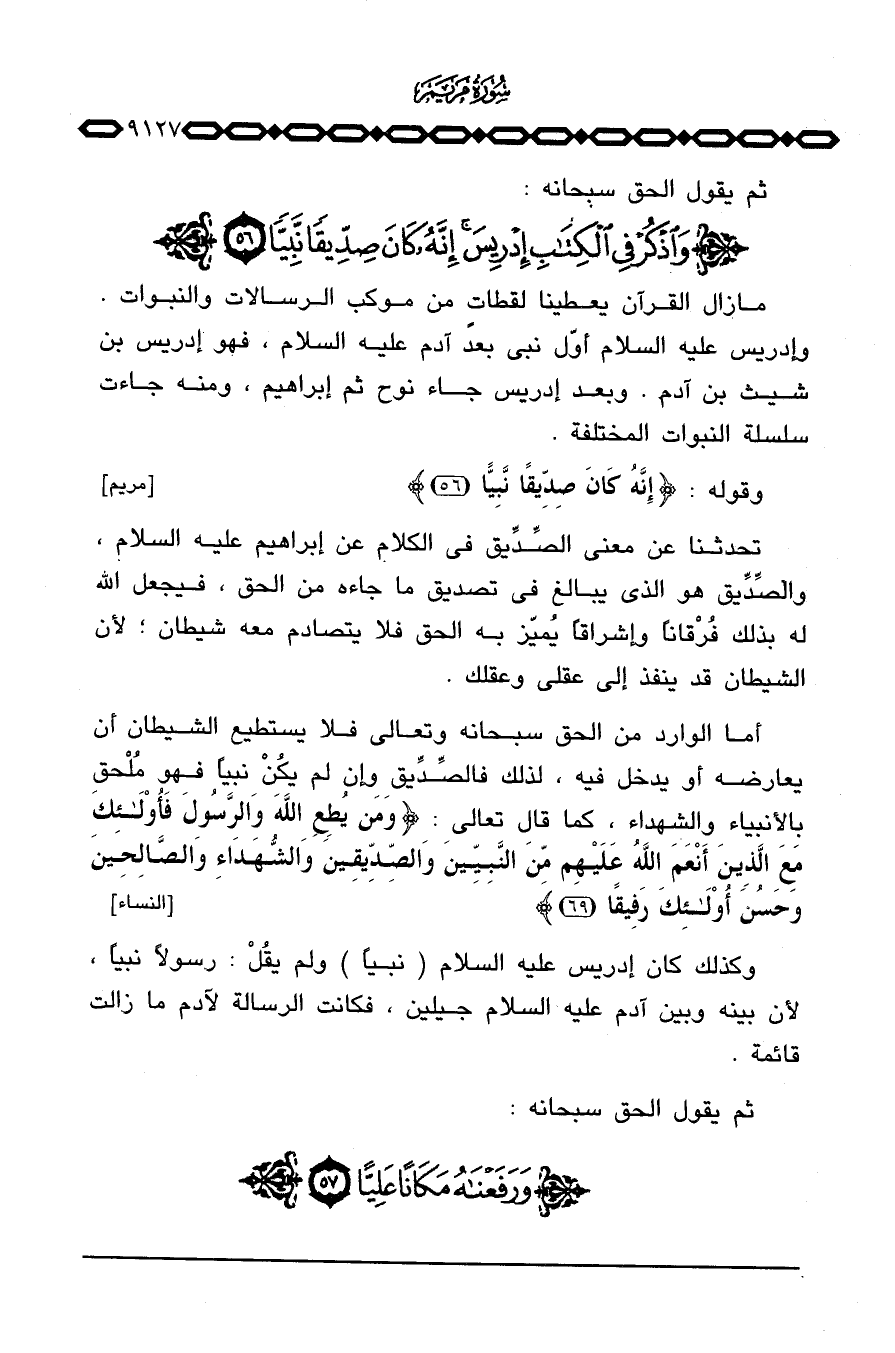 سُورَةُ مَرْيَم
٩١٢٧
ثم يقول الحق سبحانه :
وَٱذْكُرْ فِى ٱلْكِتَٰبِ إِدْرِيسَ ۚ إِنَّهُۥ كَانَ صِدِّيقًا نَّبِيًّا ٥٦
مازال القرآن يعطينا لقطات من موكب الرسالات والنبوات .
وإدريس عليه السلام أوّل نبى بعد آدم عليه السلام ، فهو إدريس بن
شيث بن آدم . وبعد إدريس جاء نوح ثم إبراهيم ، ومنه جاءت
سلسلة النبوات المختلفة .
وقوله : ﴿ إِنَّهُ كَانَ صِدِّيقًا نَّبِيًّا (٥٦) ﴾ [مريم]
تحدثنا عن معنى الصِّدِّيق فى الكلام عن إبراهيم عليه السلام ،
والصِّدِّيق هو الذى يبالغ فى تصديق ما جاءه من الحق ، فيجعل الله
له بذلك فُرْقاناً وإشراقاً يُميّز به الحق فلا يتصادم معه شيطان ؛ لأن
الشيطان قد ينفذ إلى عقلى وعقلك .
أما الوارد من الحق سبحانه وتعالى فلا يستطيع الشيطان أن
يعارضه أو يدخل فيه ، لذلك فالصِّدِّيق وإن لم يكُنْ نبياً فهو مُلْحق
بالأنبياء والشهداء ، كما قال تعالى : ﴿ وَمَن يُطِعِ اللَّهَ وَالرَّسُولَ فَأُوْلَـٰئِكَ
مَعَ الَّذِينَ أَنْعَمَ اللَّهُ عَلَيْهِم مِّنَ النَّبِيِّينَ وَالصِّدِّيقِينَ وَالشُّهَدَاءِ وَالصَّالِحِينَ
وَحَسُنَ أُوْلَـٰئِكَ رَفِيقًا (٦٩) ﴾ [النساء]
وكذلك كان إدريس عليه السلام ( نبياً ) ولم يقُلْ : رسولاً نبياً ،
لأن بينه وبين آدم عليه السلام جيلين ، فكانت الرسالة لآدم ما زالت
قائمة .
ثم يقول الحق سبحانه :
وَرَفَعْنَٰهُ مَكَانًا عَلِيًّا ٥٧